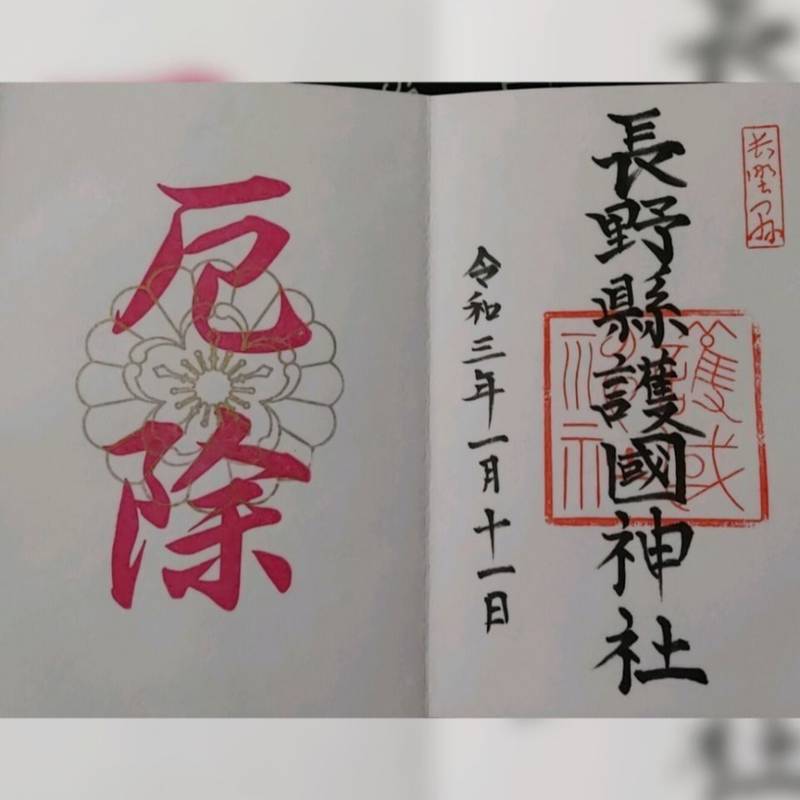 長野縣護國神社
令和三年一月十一日
厄除